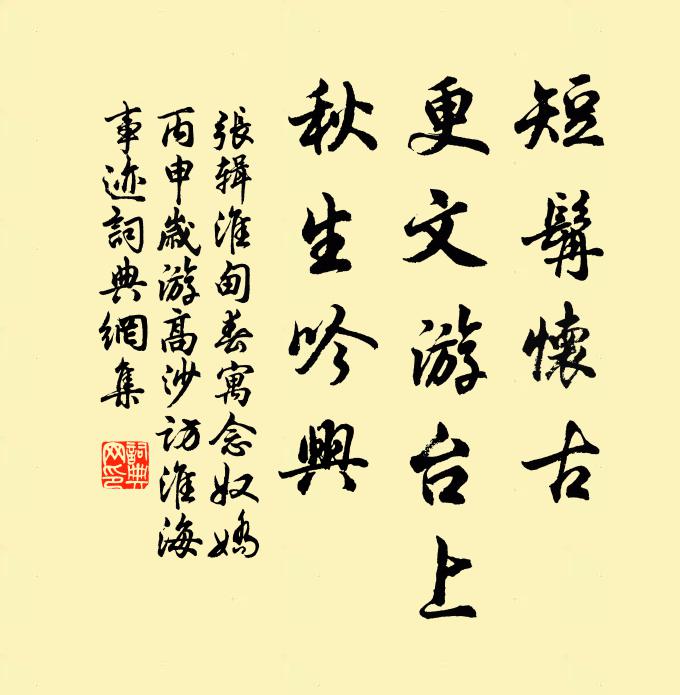 短鬢懷古
更文游台上
秋生吟興
張輯淮甸春寓念奴嬌
丙申歲游高沙訪淮海
事迹詞典網集
詞典
网印